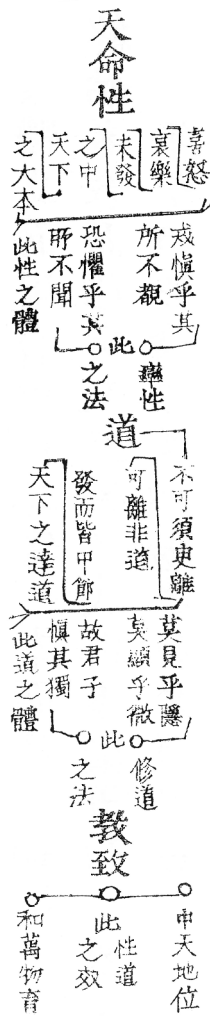 天命性
喜怒
哀樂
未發
之中
天下
之大本
此性之體
戒慎乎其
所不覩
恐懼乎其
所不聞
此
率性
之法
道
不可須臾離
可離非道
發而皆中節
天下之達道
此道之體
莫見乎隱
莫顯乎微
故君子
慎其獨
此
修道
之法
教致
中天地位
此
性道
之效
和萬物育